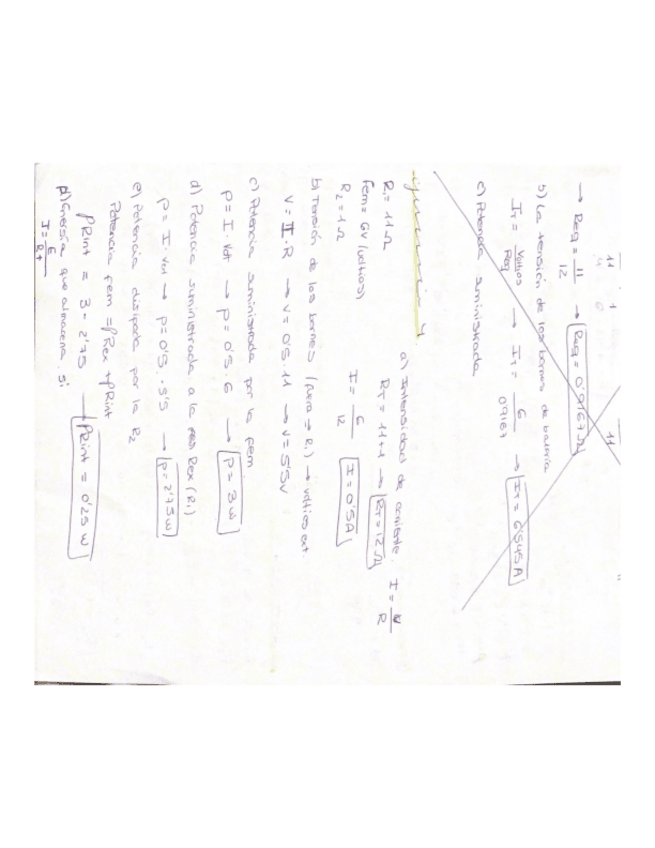 11 1 11
12
→ Req = 11/12 → Req = 0'9167 Ω
b) La tensión de los bornes de batería
IT = Voltios/Req → IT = 6/0.9167 → IT = 6'545 A
c) Potencia suministrada
Ejercicio 4
R₁ = 11 Ω
Fem = 6V (voltios)
R₂ = 1 Ω
a) Intensidad de corriente. I = V/R
RT = 11+1 → RT = 12 Ω
I = 6/12 I = 0'5A
b) Tensión de los bornes (para → R₁) → voltios ext.
V = I·R → V = 0'5·11 → V = 5'5V
c) Potencia suministrada por la fem
P = I·Vot → P = 0'5·6 → P = 3W
d) Potencia suministrada a la Rex (R₁)
P = I·Vot → P = 0'5·5'5 → P = 2'75W
e) Potencia disipada por la R₂
Potencia fem = PRex + PRint
PRint = 3 - 2'75 → PRint = 0'25 W
f) Energía que almacena, si
I = E/Rt